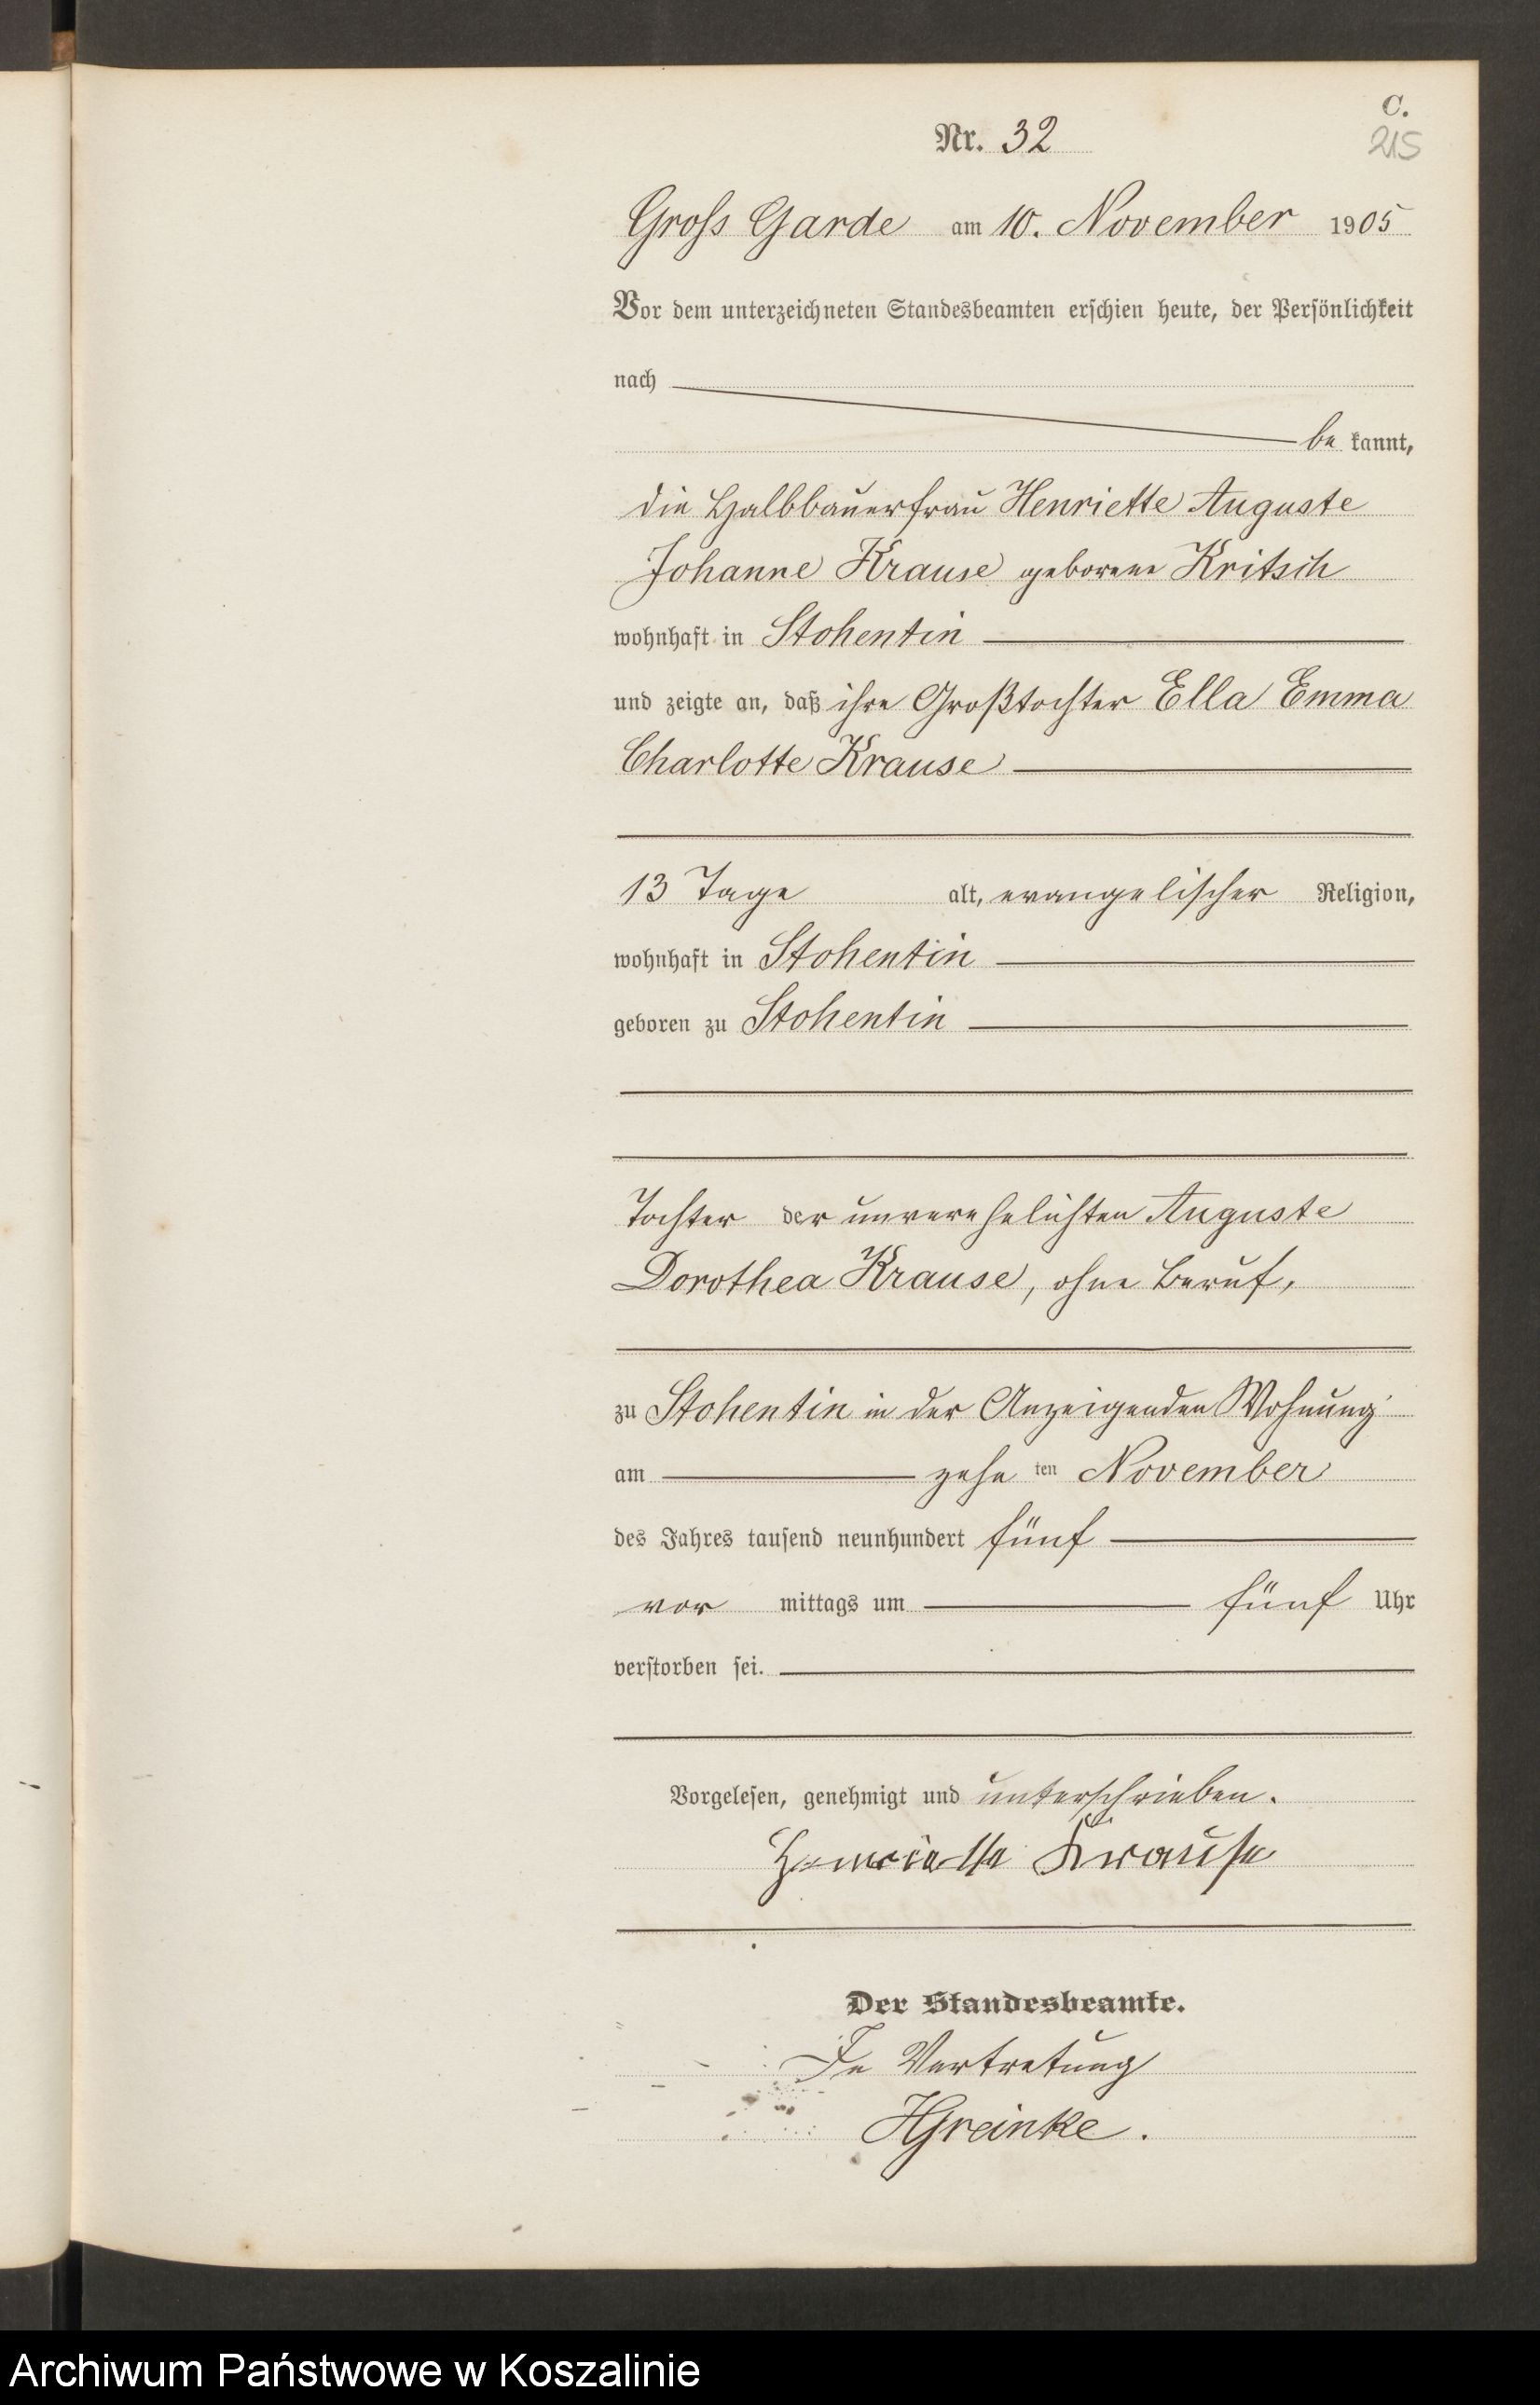 C.
Nr. 32
215
Gross Garde am 10. November 1905
Vor dem unterzeichneten Standesbeamten erschien heute, der Persönlichkeit
nach
be kannt,
die Halbbauerfrau Henriette Auguste
Johanne Krause geborene Kritsch
wohnhaft in Stohentin
und zeigte an, daß ihre Großtochter Ella Emma
Charlotte Krause
13 Tage alt, evangelischer Religion,
wohnhaft in Stohentin
geboren zu Stohentin
Tochter der unverehelichten Auguste
Dorothea Krause, ohne Beruf,
zu Stohentin in der Anzeigenden Wohnung
am zehn ten November
des Jahres tausend neunhundert fünf
vor mittags um fünf Uhr
verstorben sei.
Vorgelesen, genehmigt und unterschrieben.
Henriette Krause
Der Standesbeamte.
In Vertretung
HGreinke.
Archiwum Państwowe w Koszalinie